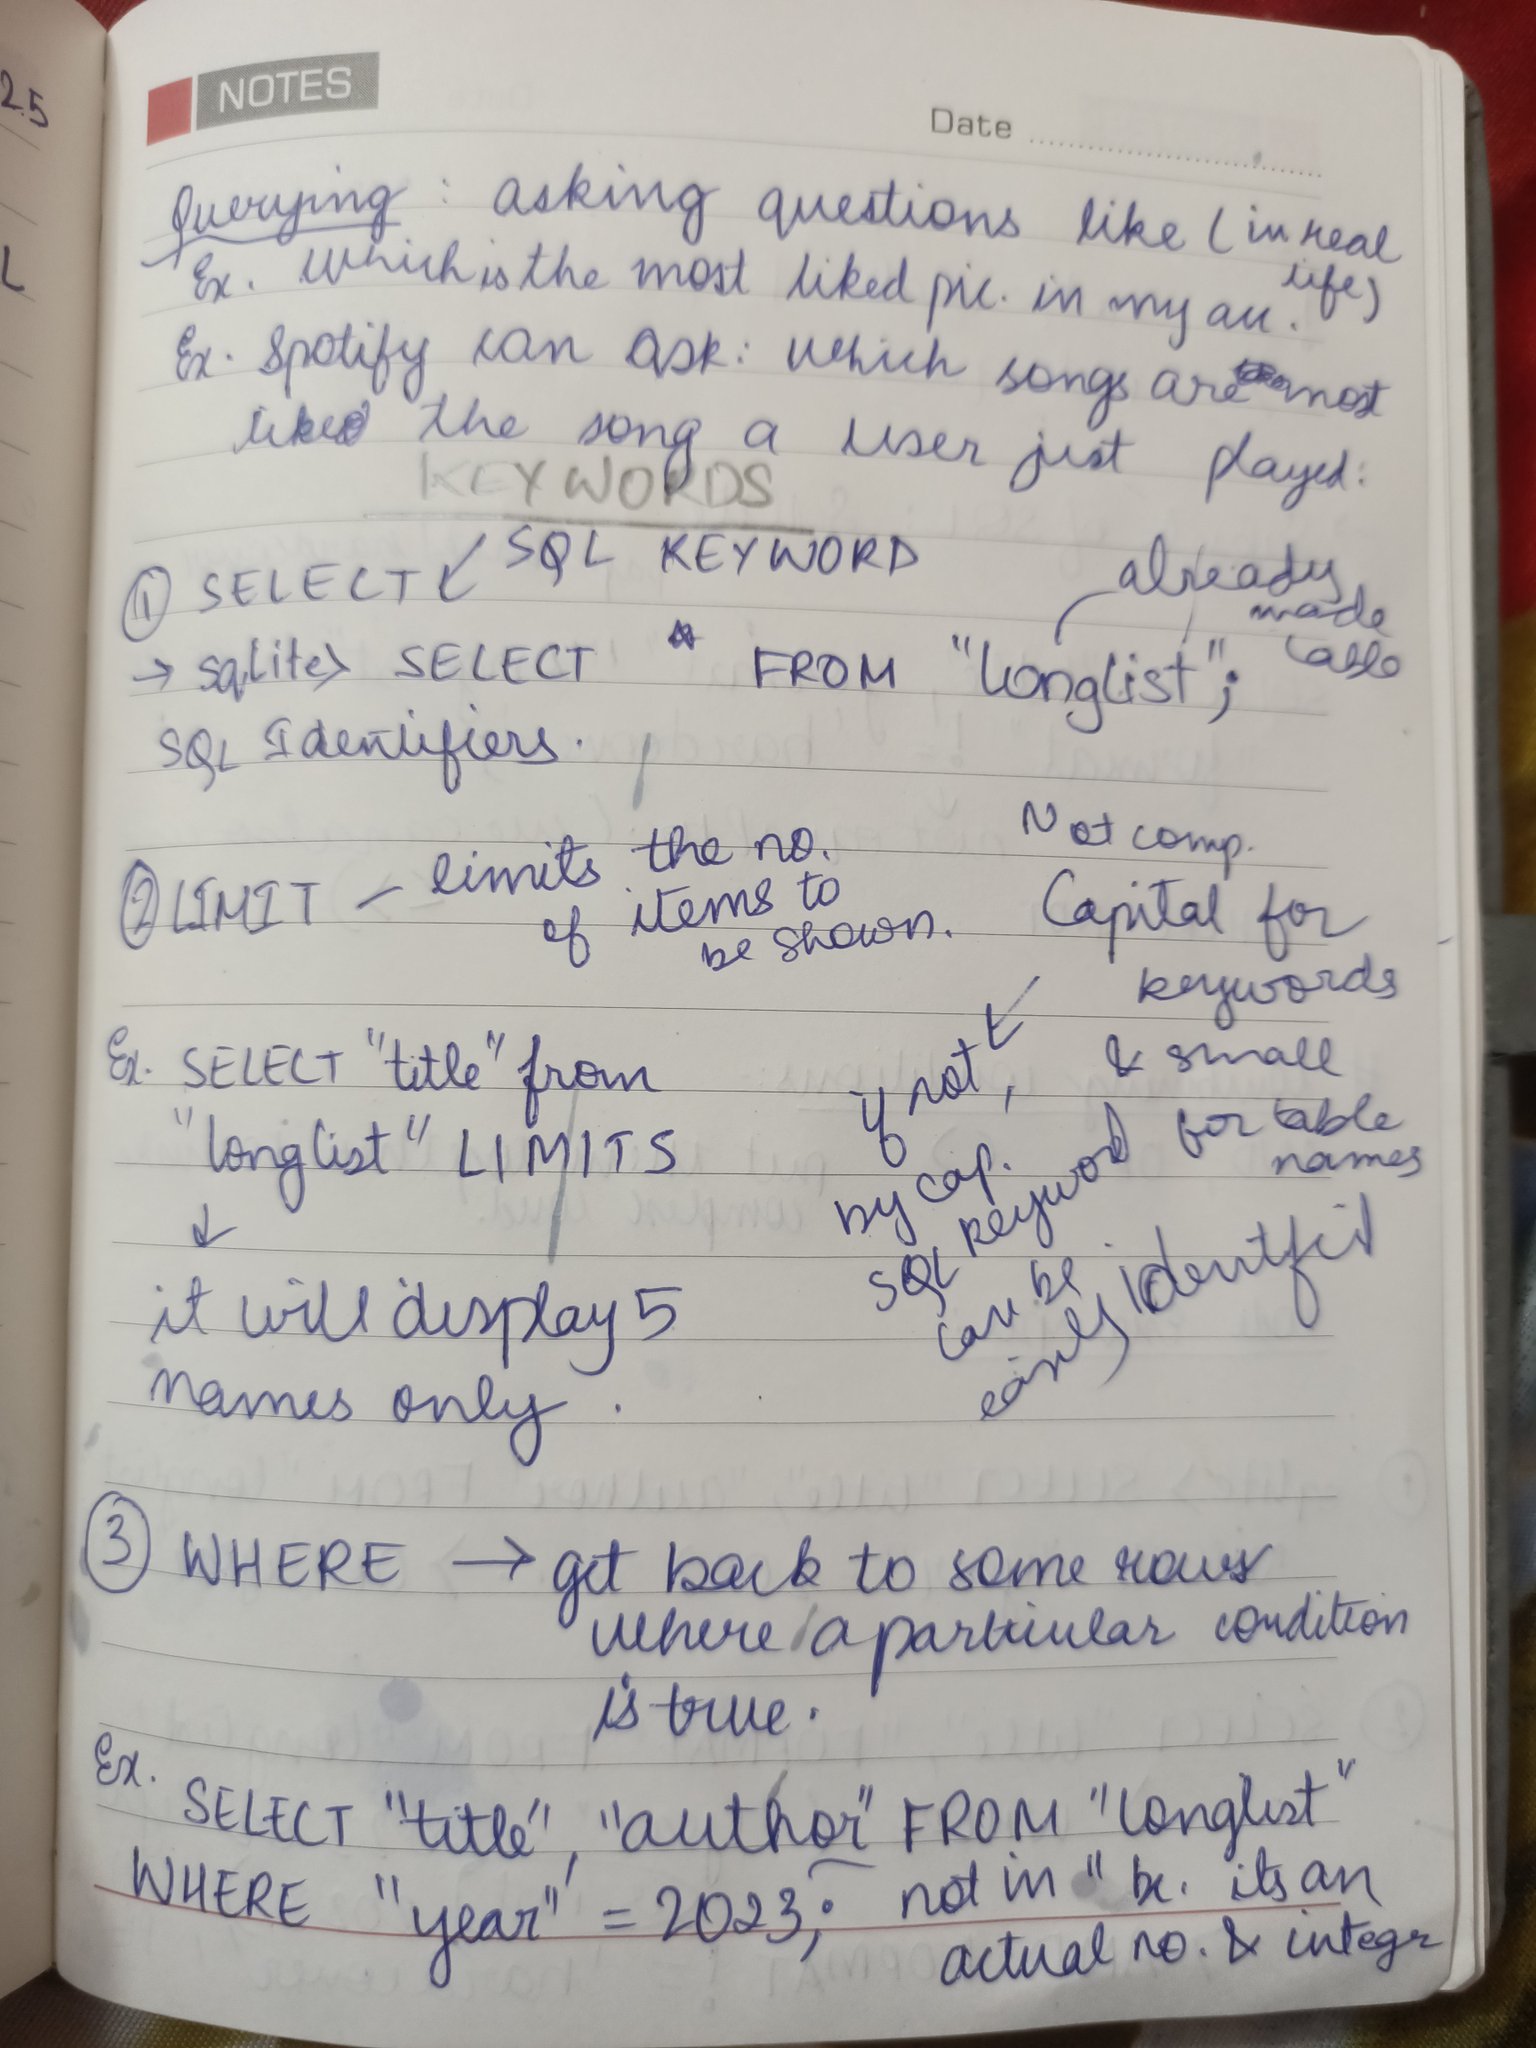 25
L
NOTES
Date
Querying : asking questions like (in real life)
Ex. Which is the most liked pic. in my acc.
Ex. Spotify can ask: which songs are most
liked the song a user just played:
KEYWORDS
① SELECT ↙ SQL KEYWORD
already made table
→ sqlite> SELECT * FROM "longlist";
SQL Identifiers.
② LIMIT – limits the no.
of items to
be shown.
Not comp.
Capital for
keywords
& small
for table
names
if not,
by cap.
SQL keyword
can be
easily identfid
Ex. SELECT "title" from
"longlist" LIMITS
↓
it will display 5
names only.
③ WHERE → get back to some rows
where a particular condition
is true.
Ex.
SELECT "title", "author" FROM "longlist"
WHERE "year" = 2023; not in " bc. its an
actual no. & integr